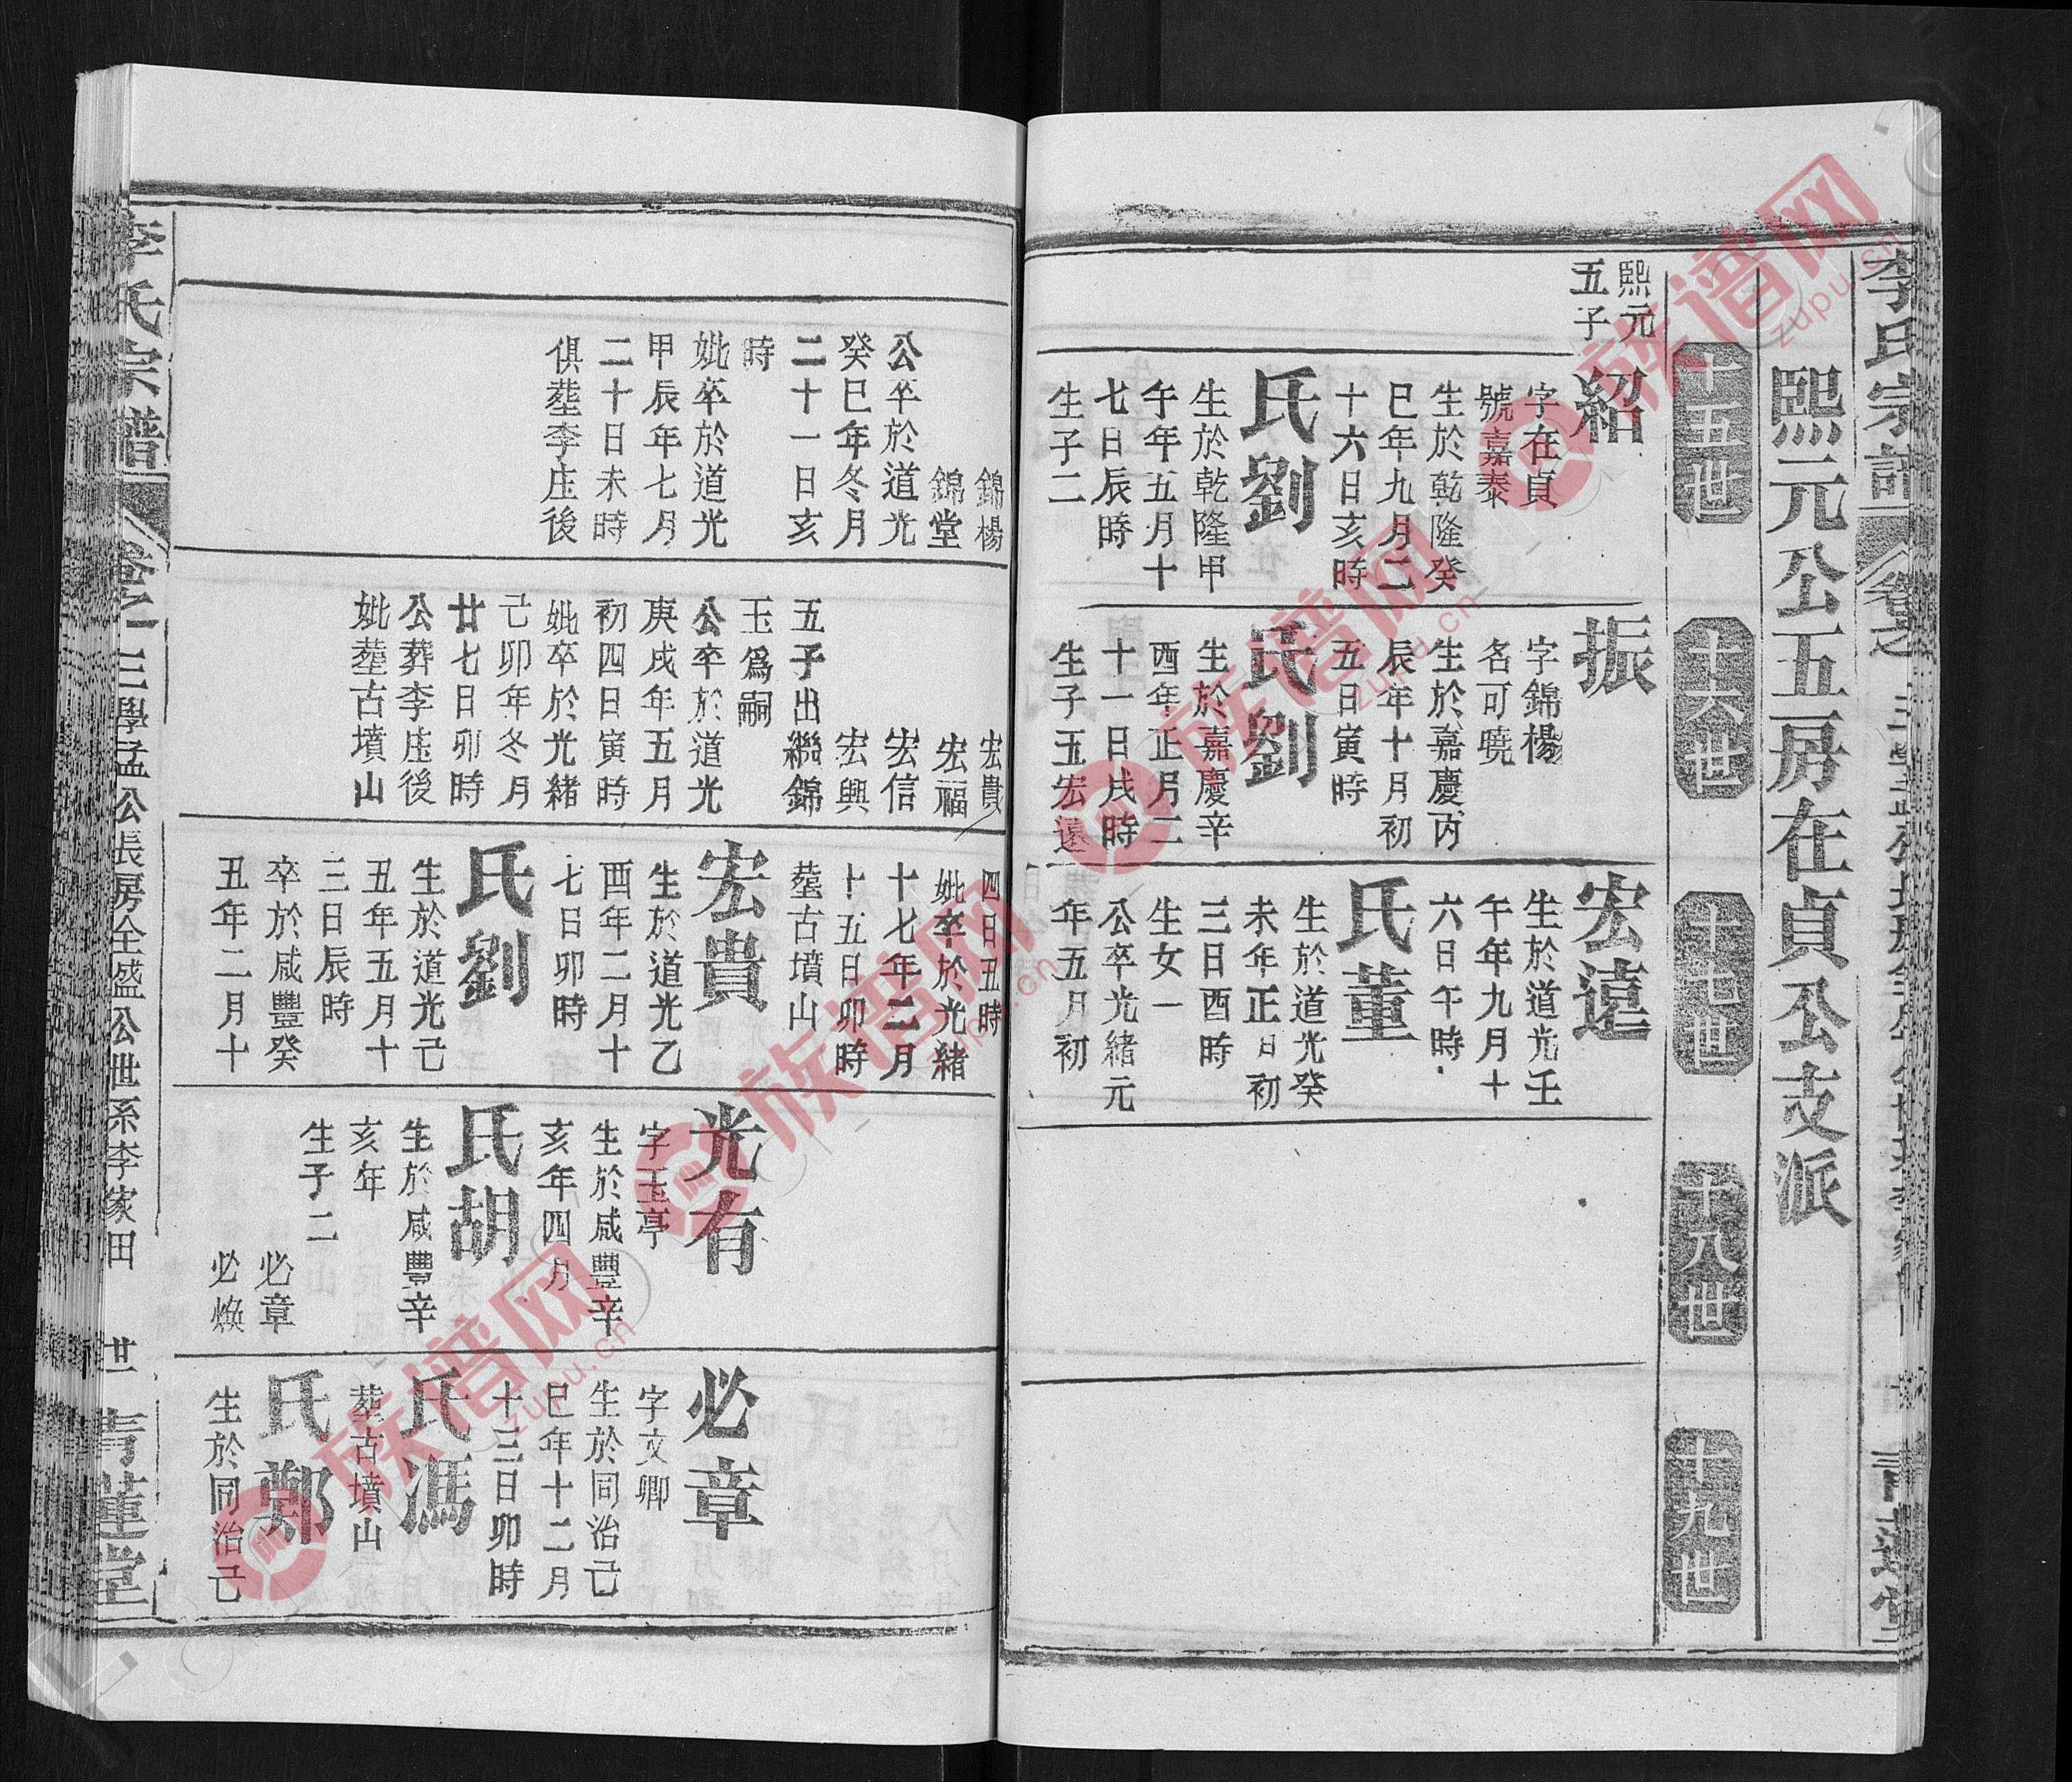 李氏宗譜
熙元公五房在貞公支派
十五世
十六世
十七世
十八世
十九世
熙元
五子
紹
字在貞
號嘉泰
生於乾隆癸
巳年九月二
十六日亥時
氏劉
生於乾隆甲
午年五月十
七日辰時
生子二
振
字錦楊
名可曉
生於嘉慶丙
辰年十月初
五日寅時
氏劉
生於嘉慶辛
酉年正月二
十一日戌時
生子五宏遠
宏遠
生於道光壬
午年九月十
六日午時
氏董
生於道光癸
未年正月初
三日酉時
生女一
公卒光緒元
年五月初
錦楊
錦堂
公卒於道光
癸巳年冬月
二十一日亥
時
妣卒於道光
甲辰年七月
二十日未時
俱塟李庄後
宏貴
宏福
宏信
宏興
五子出繼錦
玉爲嗣
公卒於道光
庚戌年五月
初四日寅時
妣卒於光緒
己卯年冬月
廿七日卯時
公葬李庄後
妣塟古墳山
四日丑時
妣卒於光緒
十七年二月
十五日卯時
塟古墳山
宏貴
生於道光乙
酉年二月十
七日卯時
氏劉
生於道光己
丑年五月十
三日辰時
卒於咸豐癸
丑年二月十
光有
字玉亭
生於咸豐辛
亥年四月
氏胡
生於咸豐辛
亥年
生子二
必章
必煥
必章
字文卿
生於同治己
巳年十二月
十三日卯時
氏馮
塟古墳山
氏鄭
生於同治己
李氏宗譜
三學孟公長房全盛公世系李家田
廿一
青蓮堂
族谱网
zupu.cn